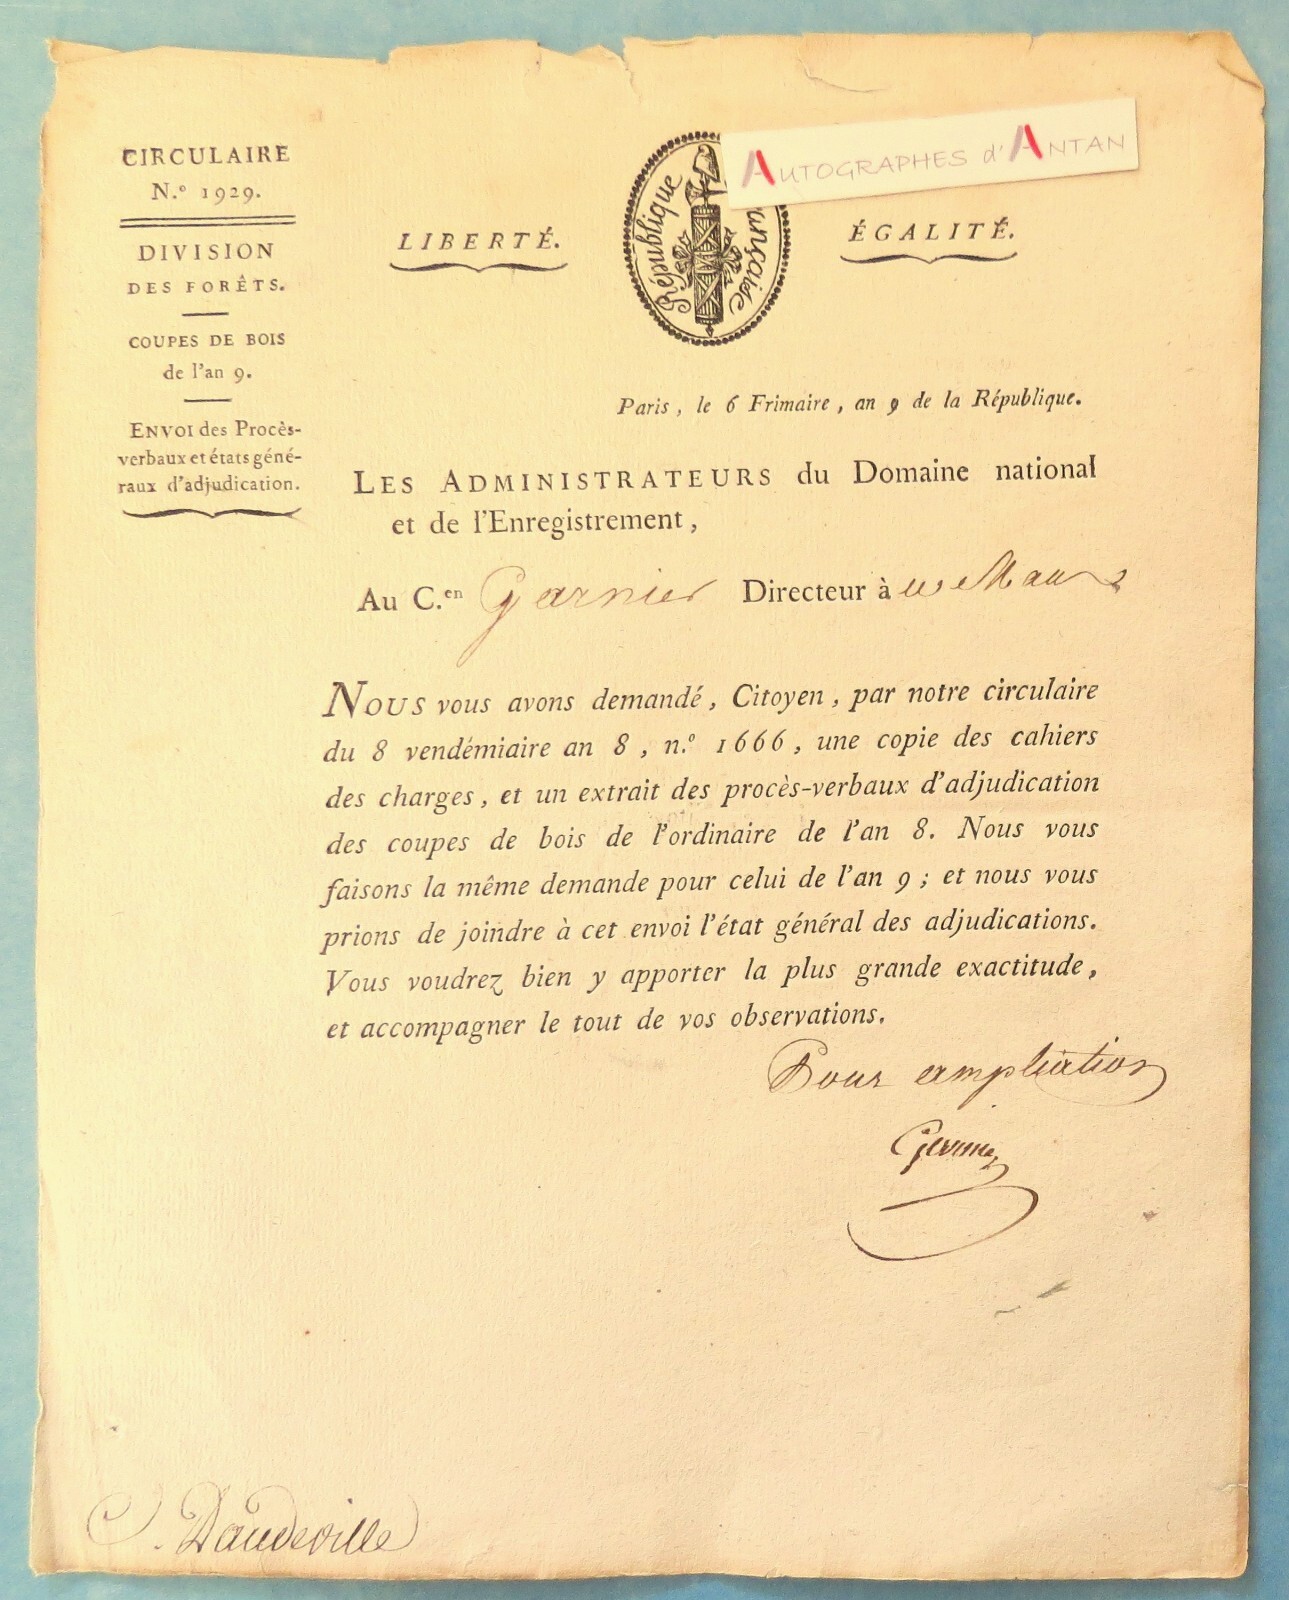 CIRCULAIRE
N.º 1929.
DIVISION
DES FORÊTS.
COUPES DE BOIS
de l'an 9.
ENVOI des Procès-
verbaux et états géné-
raux d'adjudication.
LIBERTÉ.
République française
AUTOGRAPHES d'ANTAN
ÉGALITÉ.
Paris, le 6 Frimaire, an 9 de la République.
LES ADMINISTRATEURS du Domaine national
et de l'Enregistrement,
Au C.en Garnier Directeur à au Mans
NOUS vous avons demandé, Citoyen, par notre circulaire
du 8 vendémiaire an 8, n.º 1666, une copie des cahiers
des charges, et un extrait des procès-verbaux d'adjudication
des coupes de bois de l'ordinaire de l'an 8. Nous vous
faisons la même demande pour celui de l'an 9; et nous vous
prions de joindre à cet envoi l'état général des adjudications.
Vous voudrez bien y apporter la plus grande exactitude,
et accompagner le tout de vos observations.
Pour ampliation
C. Daudeville